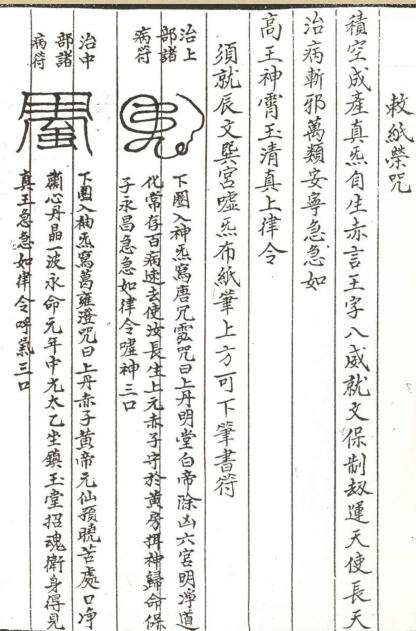 敕紙榮咒
積空成産真炁自生赤言王字八威就文保制刼運天使長天
治病斬邪萬類安寧急急如
高王神霄玉清真上律令
須就辰文巽宮噓炁布紙筆上方可下筆書符
治上
部諸
病符
下圈入神炁寫唐冗靈咒曰上丹明堂白帝除凶六宮明淨道
化常存百病速去使汝長生上元赤子守於黄房拜神歸命保
子永昌急急如律令噓神三口
治中
部諸
病符
下圈入柚炁寫葛雍澄咒曰上丹赤子黄帝元仙預曉苦處口净
肅心丹晶一波永命元年中尤太乙坐鎮玉堂招魂衛身得見
真王急急如律令呼氣三口